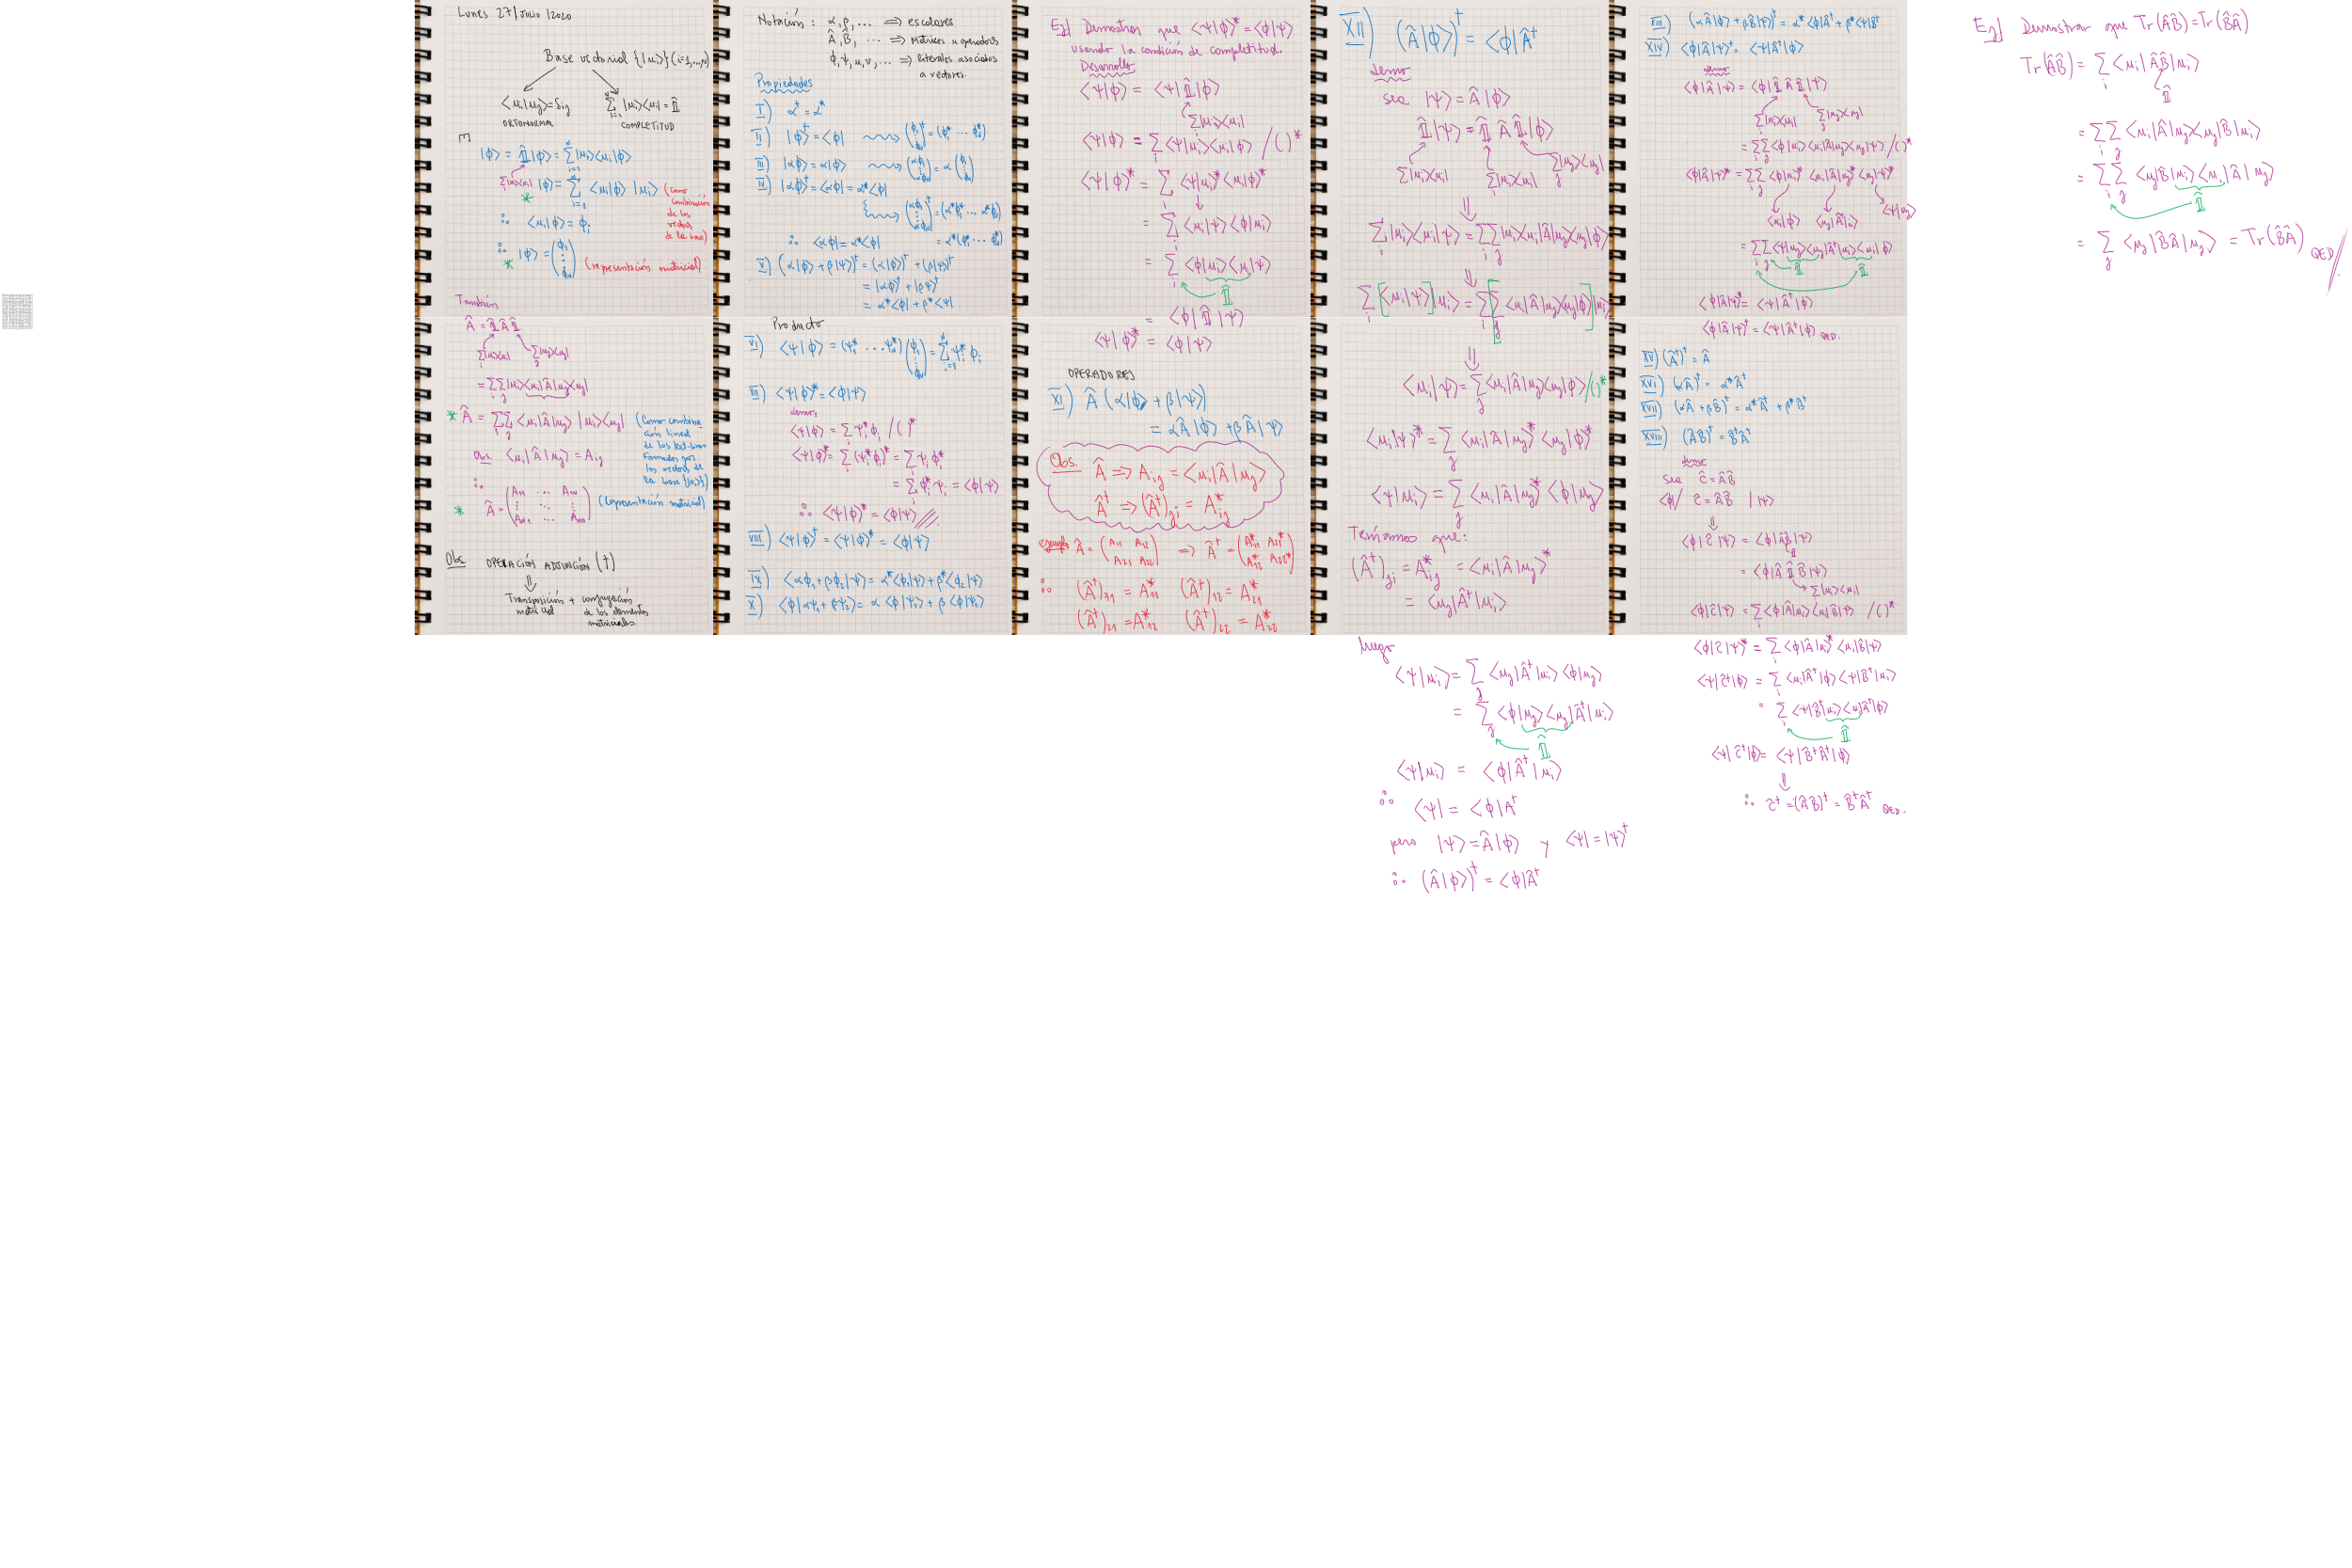 Lunes 27/Julio/2020
Base vectorial {|u_i>} (i=1,...,N)
<u_i|u_j> = δ_ij
ORTONORMAL
Σ_{i=1}^{N} |u_i><u_i| = 𝟙̂
COMPLETITUD
|φ> = 𝟙̂|φ> = Σ_{i=1}^{N} |u_i><u_i|φ>
Σ_i |u_i><u_i|
* |φ> = Σ_{i=1}^{N} <u_i|φ> |u_i> (Como combinación de los vectores de la base)
∴ <u_i|φ> = φ_i
∴ * |φ> = (φ_1 ⋮ φ_N) (representación matricial)
También
Â = 𝟙̂ Â 𝟙̂
Σ_i |u_i><u_i| Σ_j |u_j><u_j|
= Σ_i Σ_j |u_i><u_i|Â|u_j><u_j|
* Â = Σ_i Σ_j <u_i|Â|u_j> |u_i><u_j| (Como combinación lineal de los ket-bran formados por los vectores de la base {|u_i>})
Obs. <u_i|Â|u_j> = A_ij
∴
* Â = (A_11 ... A_1N ⋮ ⋱ ⋮ A_N1 ... A_NN) (representación matricial)
Obs OPERACIÓN ADJUNCIÓN (†)
⇓
Transposición matricial + conjugación de los elementos matriciales.
Notación: α, β, ... => escalares
Â, B̂, ... => Matrices u operadores
φ, ψ, u, v, ... => literales asociados a vectores.
Propiedades
I) α† = α*
II) |φ>† = <φ| ⇝ (φ_1 ⋮ φ_N)† = (φ_1* ... φ_N*)
III) |αφ> = α|φ> ⇝ (αφ_1 ⋮ αφ_N) = α(φ_1 ⋮ φ_N)
IV) |αφ>† = <αφ| = α*<φ|
⇝ (αφ_1 ⋮ αφ_N)† = (α*φ_1* ... α*φ_N*)
∴ <αφ| = α*<φ| = α*(φ_1* ... φ_N*)
V) (α|φ> + β|ψ>)† = (α|φ>)† + (β|ψ>)†
= |αφ>† + |βψ>†
= α*<φ| + β*<ψ|
Producto
VI) <ψ|φ> = (ψ_1* ... ψ_N*)(φ_1 ⋮ φ_N) = Σ_{i=1}^{N} ψ_i* φ_i
VII) <ψ|φ>* = <φ|ψ>
demos
<ψ|φ> = Σ_i ψ_i* φ_i / ( )*
<ψ|φ>* = Σ_i (ψ_i* φ_i)* = Σ_i ψ_i φ_i*
= Σ_i φ_i* ψ_i = <φ|ψ>
∴ <ψ|φ>* = <φ|ψ>
VIII) <ψ|φ>† = <ψ|φ>* = <φ|ψ>
IX) <αφ_1 + βφ_2|ψ> = α*<φ_1|ψ> + β*<φ_2|ψ>
X) <φ|αψ_1 + βψ_2> = α<φ|ψ_1> + β<φ|ψ_2>
Ej) Demostrar que <ψ|φ>* = <φ|ψ>
usando la condición de completitud.
Desarrollo
<ψ|φ> = <ψ|𝟙̂|φ>
Σ_i |u_i><u_i|
<ψ|φ> = Σ_i <ψ|u_i><u_i|φ> / ( )*
<ψ|φ>* = Σ_i <ψ|u_i>* <u_i|φ>*
= Σ_i <u_i|ψ><φ|u_i>
= Σ_i <φ|u_i><u_i|ψ>
𝟙̂
= <φ|𝟙̂|ψ>
<ψ|φ>* = <φ|ψ>
OPERADORES
XI) Â(α|φ> + β|ψ>)
= αÂ|φ> + βÂ|ψ>
Obs. Â => A_ij = <u_i|Â|u_j>
Â† => (Â†)_ji = A*_ij
ejemplo Â = (A_11 A_12 A_21 A_22) => Â† = (A_11* A_21* A_12* A_22*)
∴ (Â†)_11 = A*_11 (Â†)_12 = A*_21
(Â†)_21 = A*_12 (Â†)_22 = A*_22
XII) (Â|φ>)† = <φ|Â†
demo
sea |ψ> = Â|φ>
𝟙̂|ψ> = 𝟙̂ Â 𝟙̂|φ>
Σ_i |u_i><u_i| Σ_i |u_i><u_i| Σ_j |u_j><u_j|
⇓
Σ_i |u_i><u_i|ψ> = Σ_i Σ_j |u_i><u_i|Â|u_j><u_j|φ>
⇓
Σ_i [<u_i|ψ>]|u_i> = Σ_i [Σ_j <u_i|Â|u_j><u_j|φ>]|u_i>
⇓
<u_i|ψ> = Σ_j <u_i|Â|u_j><u_j|φ> / ( )*
<u_i|ψ>* = Σ_j <u_i|Â|u_j>* <u_j|φ>*
<ψ|u_i> = Σ_j <u_i|Â|u_j>* <φ|u_j>
Teníamos que:
(Â†)_ji = A*_ij = <u_i|Â|u_j>*
= <u_j|Â†|u_i>
luego
<ψ|u_i> = Σ_j <u_j|Â†|u_i><φ|u_j>
= Σ_j <φ|u_j><u_j|Â†|u_i>
𝟙̂
<ψ|u_i> = <φ|Â†|u_i>
∴ <ψ| = <φ|A†
pero |ψ> = Â|φ> y <ψ| = |ψ>†
∴ (Â|φ>)† = <φ|Â†
XIII) (αÂ|φ> + βB̂|ψ>)† = α*<φ|Â† + β*<ψ|B̂†
XIV) <φ|Â|ψ>* = <ψ|Â†|φ>
demo
<φ|Â|ψ> = <φ|𝟙̂ Â 𝟙̂|ψ>
Σ_i |u_i><u_i| Σ_j |u_j><u_j|
= Σ_i Σ_j <φ|u_i><u_i|Â|u_j><u_j|ψ> / ( )*
<φ|Â|ψ>* = Σ_i Σ_j <φ|u_i>* <u_i|Â|u_j>* <u_j|ψ>*
<u_i|φ> <u_j|Â†|u_i> <ψ|u_j>
= Σ_i Σ_j <ψ|u_j><u_j|Â†|u_i><u_i|φ>
𝟙̂ 𝟙̂
<φ|Â|ψ>* = <ψ|Â†|φ>
<φ|Â|ψ>† = <ψ|Â†|φ> QED.
XV) (Â†)† = Â
XVI) (αÂ)† = α*Â†
XVII) (αÂ + βB̂)† = α*Â† + β*B̂†
XVIII) (ÂB̂)† = B̂†Â†
demo
sea Ĉ = ÂB̂
<φ|/ Ĉ = ÂB̂ / |ψ>
⇓
<φ|Ĉ|ψ> = <φ|ÂB̂|ψ>
𝟙
= <φ|Â 𝟙̂ B̂|ψ>
Σ_i |u_i><u_i|
<φ|Ĉ|ψ> = Σ_i <φ|Â|u_i><u_i|B̂|ψ> / ( )*
<φ|Ĉ|ψ>* = Σ_i <φ|Â|u_i>* <u_i|B̂|ψ>
<ψ|Ĉ†|φ> = Σ_i <u_i|Â†|φ><ψ|B̂†|u_i>
= Σ_i <ψ|B̂†|u_i><u_i|Â†|φ>
𝟙̂
<ψ|Ĉ†|φ> = <ψ|B̂†Â†|φ>
⇓
∴ Ĉ† = (ÂB̂)† = B̂†Â† QED.
Ej) Demostrar que Tr(ÂB̂) = Tr(B̂Â)
Tr(ÂB̂) = Σ_i <u_i|ÂB̂|u_i>
𝟙̂
= Σ_i Σ_j <u_i|Â|u_j><u_j|B̂|u_i>
= Σ_i Σ_j <u_j|B̂|u_i><u_i|Â|u_j>
𝟙̂
= Σ_j <u_j|B̂Â|u_j> = Tr(B̂Â) QED